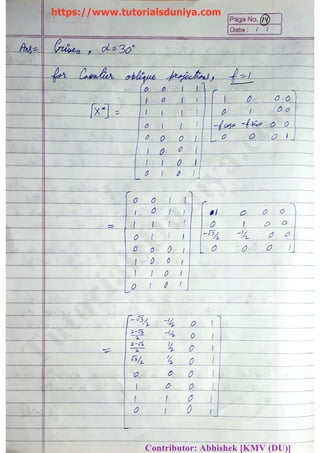 https://www.tutorialsduniya.com
Page No. 14
Data : / /
Ans= Given, α=30°
for Cavalier oblique projections, f=1
0 0 1 1
1 0 1 1 1 0 0 0
[X*] = 1 1 1 1 0 1 0 0
0 1 1 1 -f cosα -f sinα 0 0
0 0 0 1 0 0 0 1
1 0 0 1
1 1 0 1
0 1 0 1
0 0 1 1
1 0 1 1 1 0 0 0
1 1 1 1 0 1 0 0
= 0 1 1 1 -√3/2 -1/2 0 0
0 0 0 1 0 0 0 1
1 0 0 1
1 1 0 1
0 1 0 1
-√3/2 -1/2 0 1
2-√3/2 -1/2 0 1
= 2-√3/2 1/2 0 1
√3/2 1/2 0 1
0 0 0 1
1 0 0 1
1 1 0 1
0 1 0 1
Contributor: Abhishek [KMV (DU)]